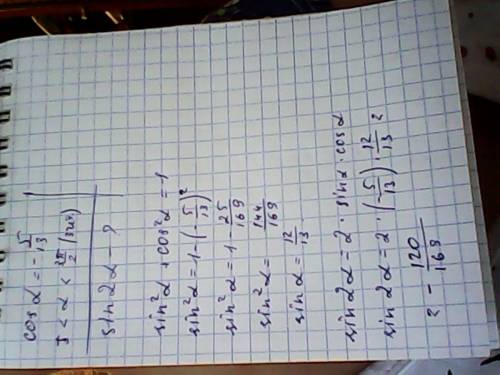 cos α = - 5/13
π < α < 3π/2 (3 чет)
sin 2α - ?
sin²α + cos²α = 1
sin²α = 1 - (- 5/13)²
sin²α = 1 - 25/169
sin²α = 144/169
sin α = 12/13
sin 2α = 2 · sin α · cos α
sin 2α = 2 · (- 5/13) · 12/13 =
= - 120/169